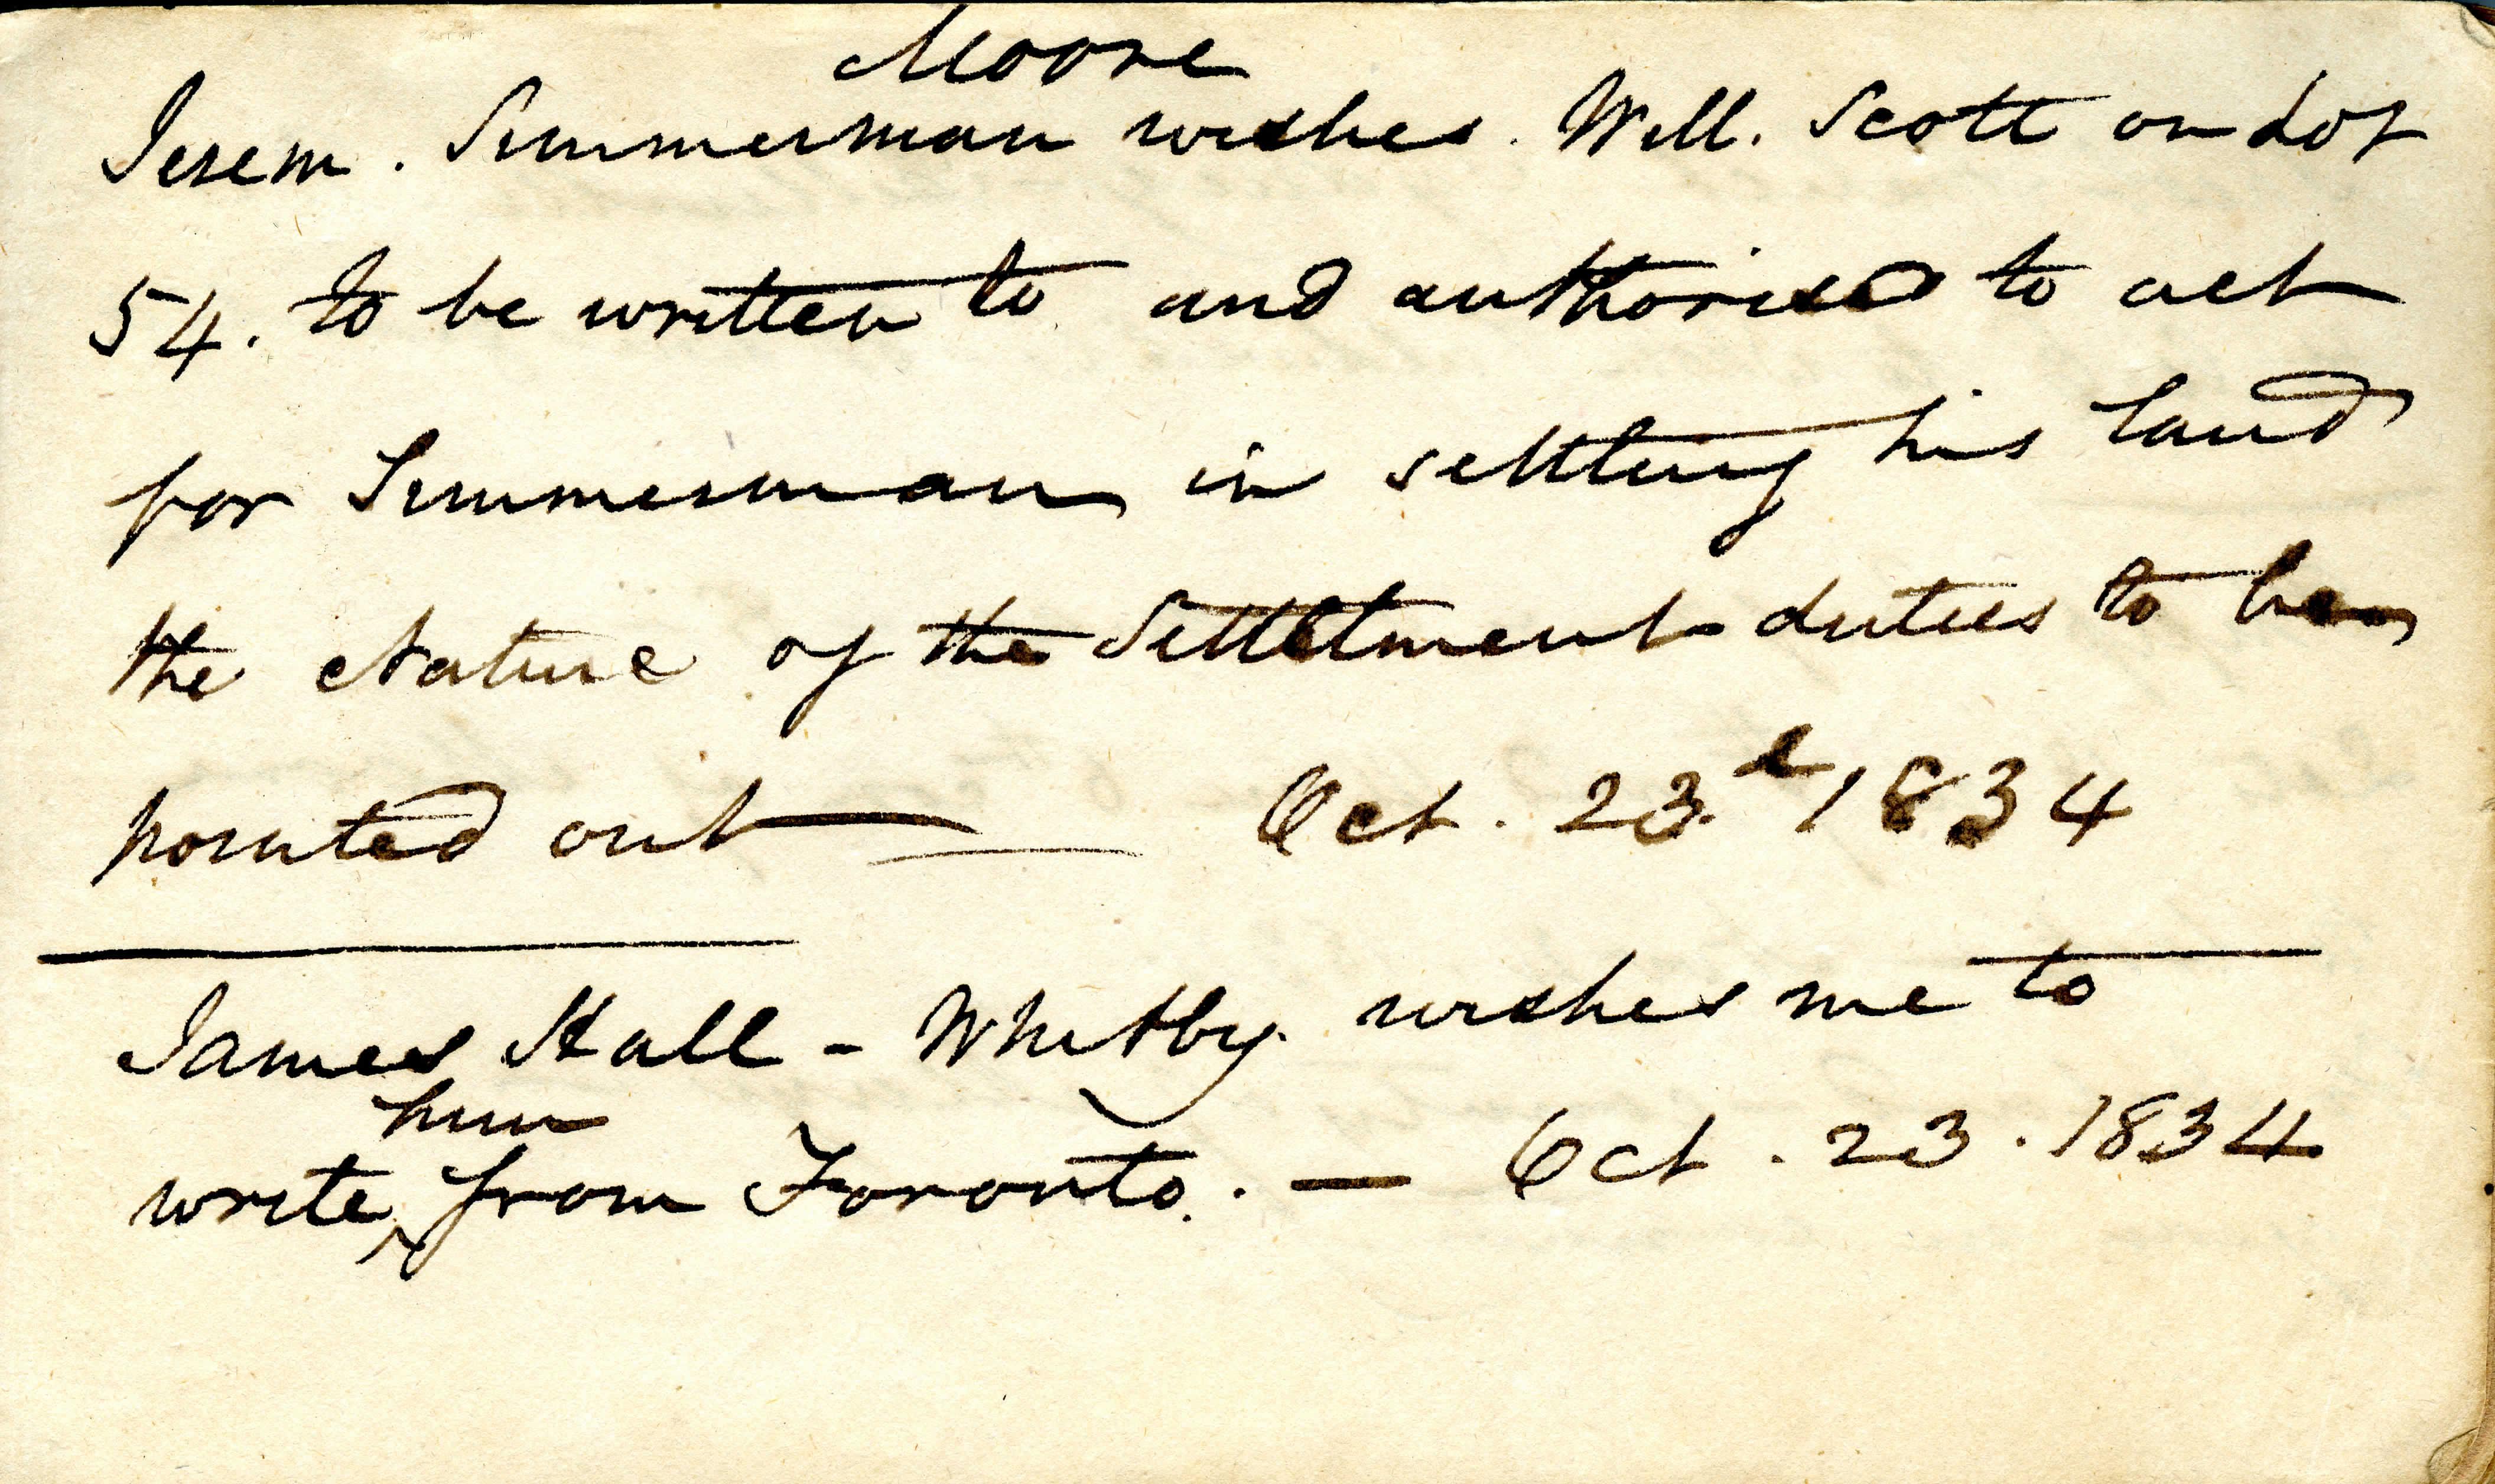 Moore
Jerem. Simmerman wishes. Will. Scott on Lot
54. to be written to and authorised to act
for Simmerman in settling his land
the Nature of the Settletment duties to be
pointed out — Oct. 23d 1834
James Hall - Whitby wishes me to
him
write from Toronto. — Oct. 23. 1834